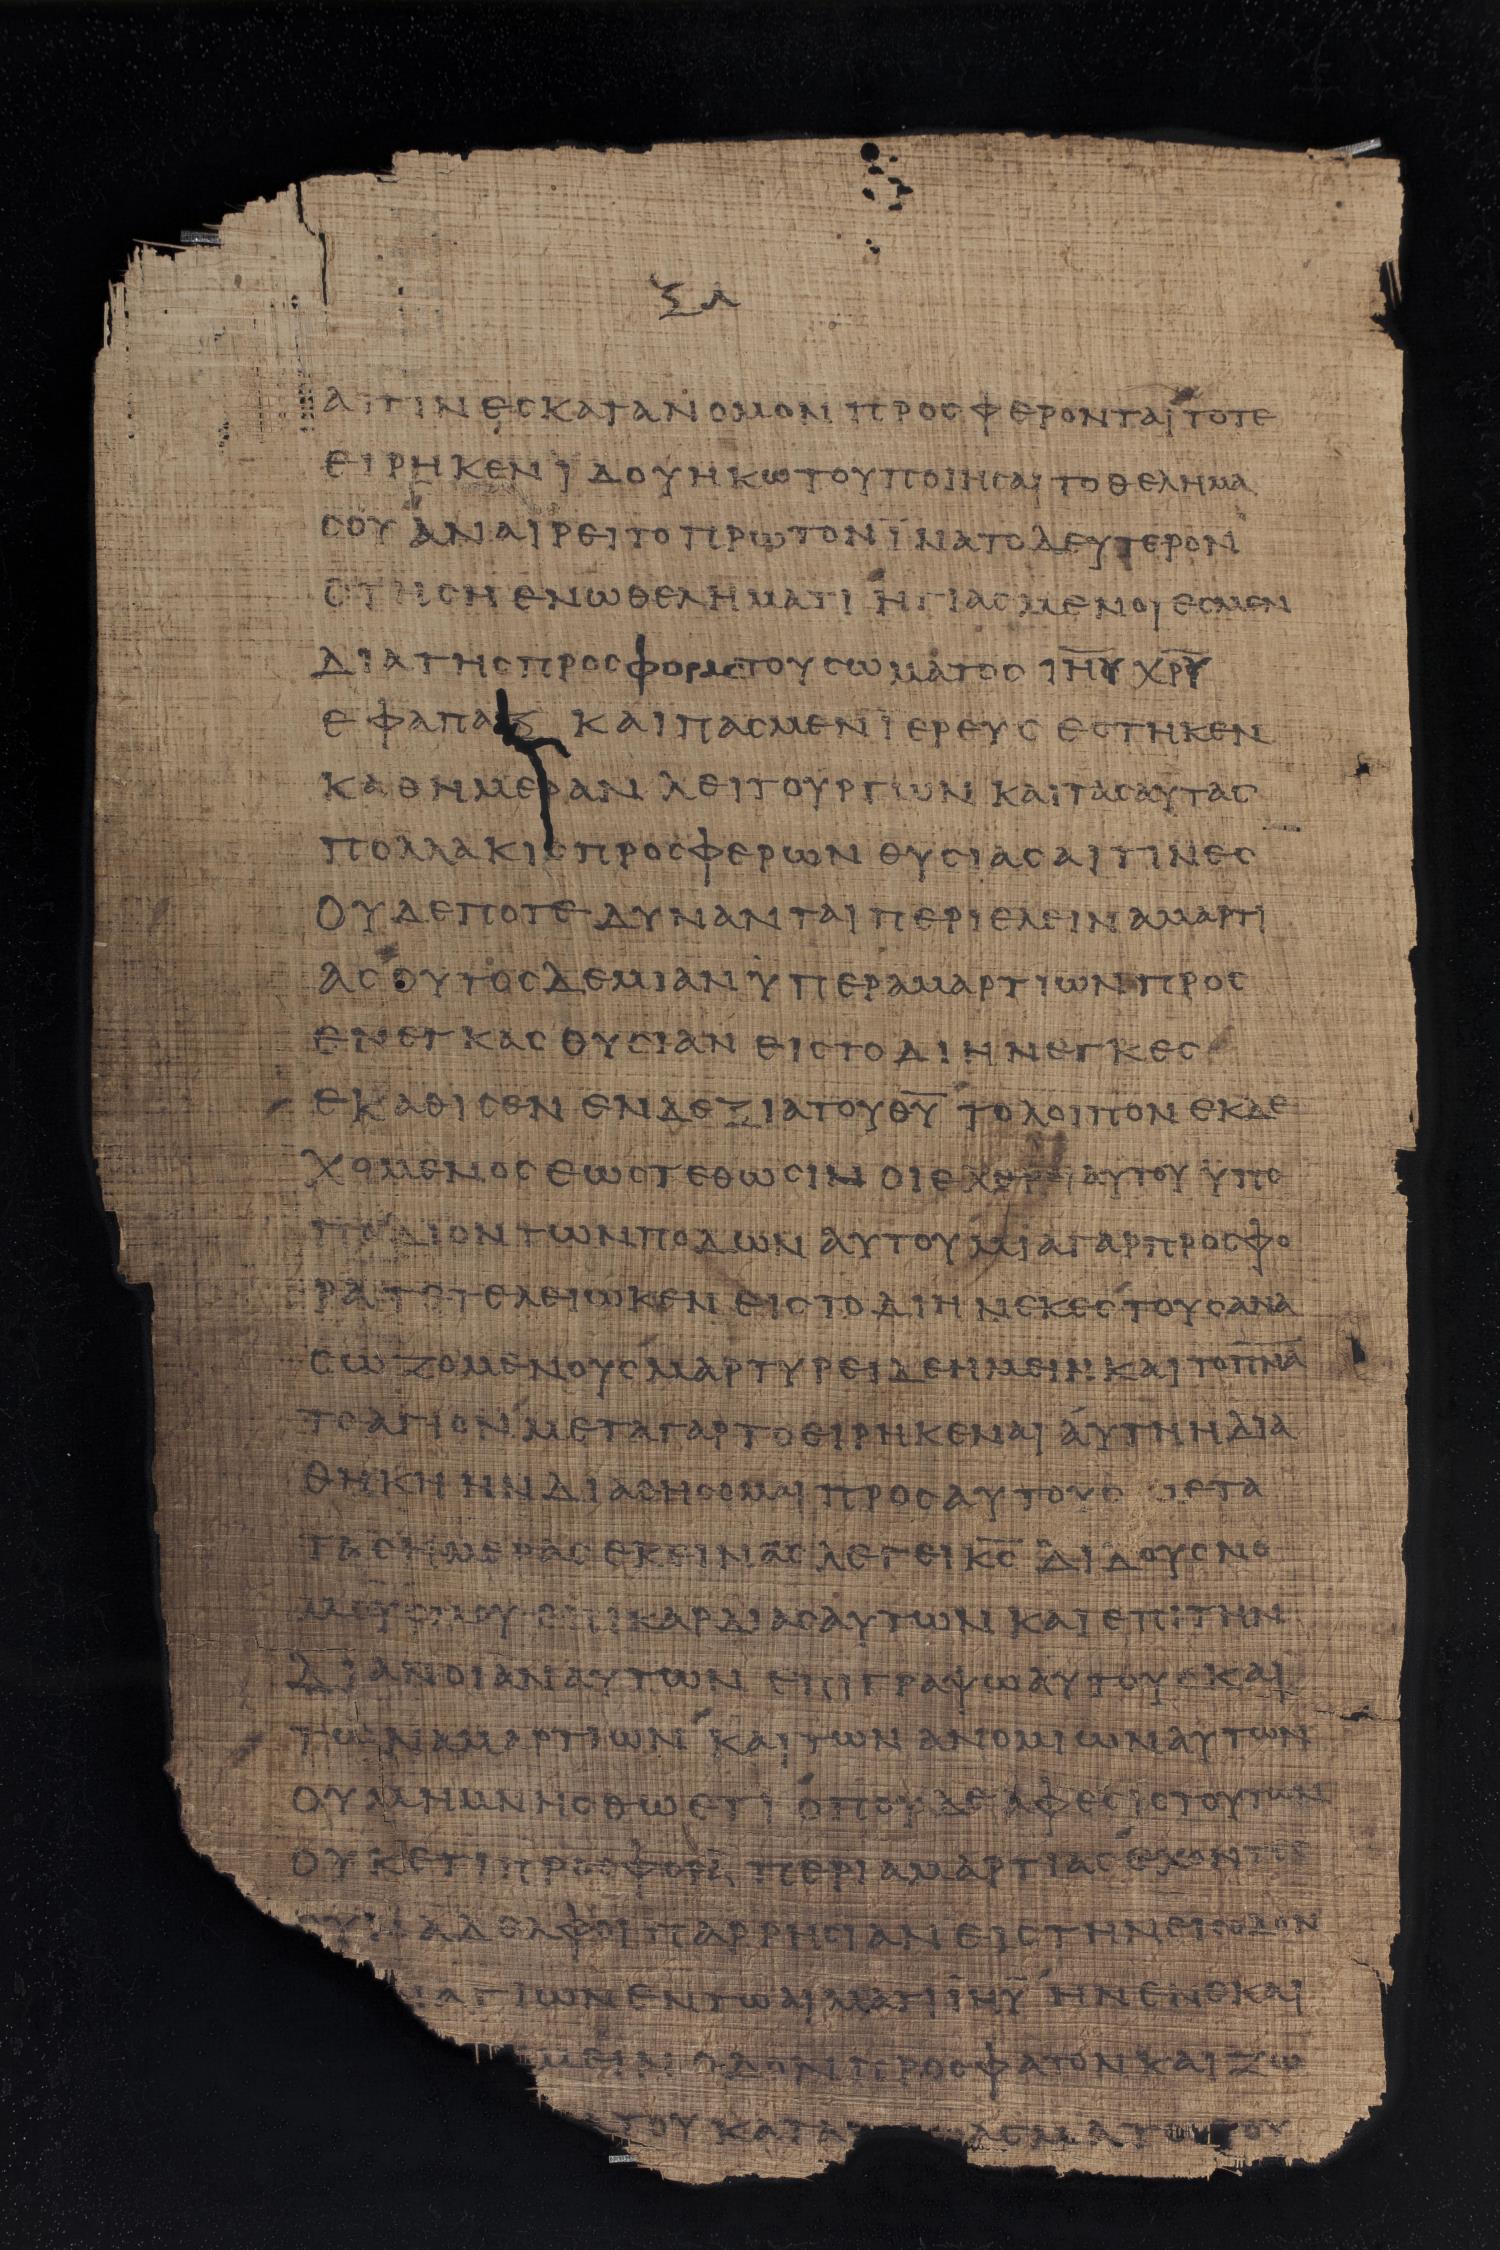 ξα
αιτινες κατα νομον προσφερονται τοτε
ειρηκεν ιδου ηκω του ποιησαι το θελημα
σου αναιρει το πρωτον ϊνα το δευτερον
στηση εν ω θεληματι ηγιασμενοι εσμεν
δια της προσφορας του σωματος ιηυ χρυ
εφαπαξ και πας μεν ϊερευς εστηκεν
καθ ημεραν λειτουργων και τας αυτας
πολλακις προσφερων θυσιας αιτινες
ουδεποτε δυνανται περιελειν αμαρτι
ας ουτος δε μιαν ϋπερ αμαρτιων προς
ενεγκας θυσιαν εις το διηνεγκες
εκαθισεν εν δεξια του θυ το λοιπον εκδε
χομενος εως τεθωσιν οι εχθροι αυτου ϋπο
ποδιον των ποδων αυτου μια γαρ προσφο
ρα τετελειωκεν εις το διηνεκες τους ανα
σωζομενους μαρτυρει δε ημειν και το πνα
το αγιον μετα γαρ το ειρηκεναι αυτη η δια
θηκη ην διαθησομαι προς αυτους μετα
τας ημερας εκεινας λεγει κς διδους νο
μους μου επι καρδιας αυτων και επι την
διανοιαν αυτων επιγραψω αυτους και
των αμαρτιων και των ανομιων αυτων
ου μη μνησθω ετι οπου δε αφεσις τουτων
ουκετι προσφορα περι αμαρτιας εχοντες
ουν αδελφοι παρρησιαν εις την εισοδον
αγιων εν τω αιματι ιηυ ην ενεκαι
ημειν οδον προσφατον και ζω
του κατα του